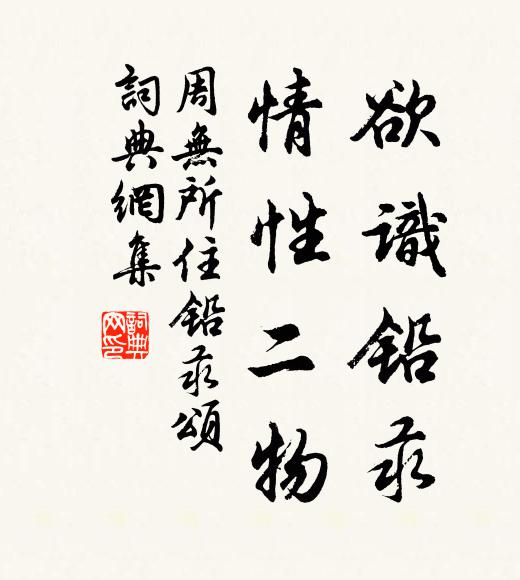 欲識鉛汞
情性二物
周無所住鉛汞頌
詞典網集
詞典
网印